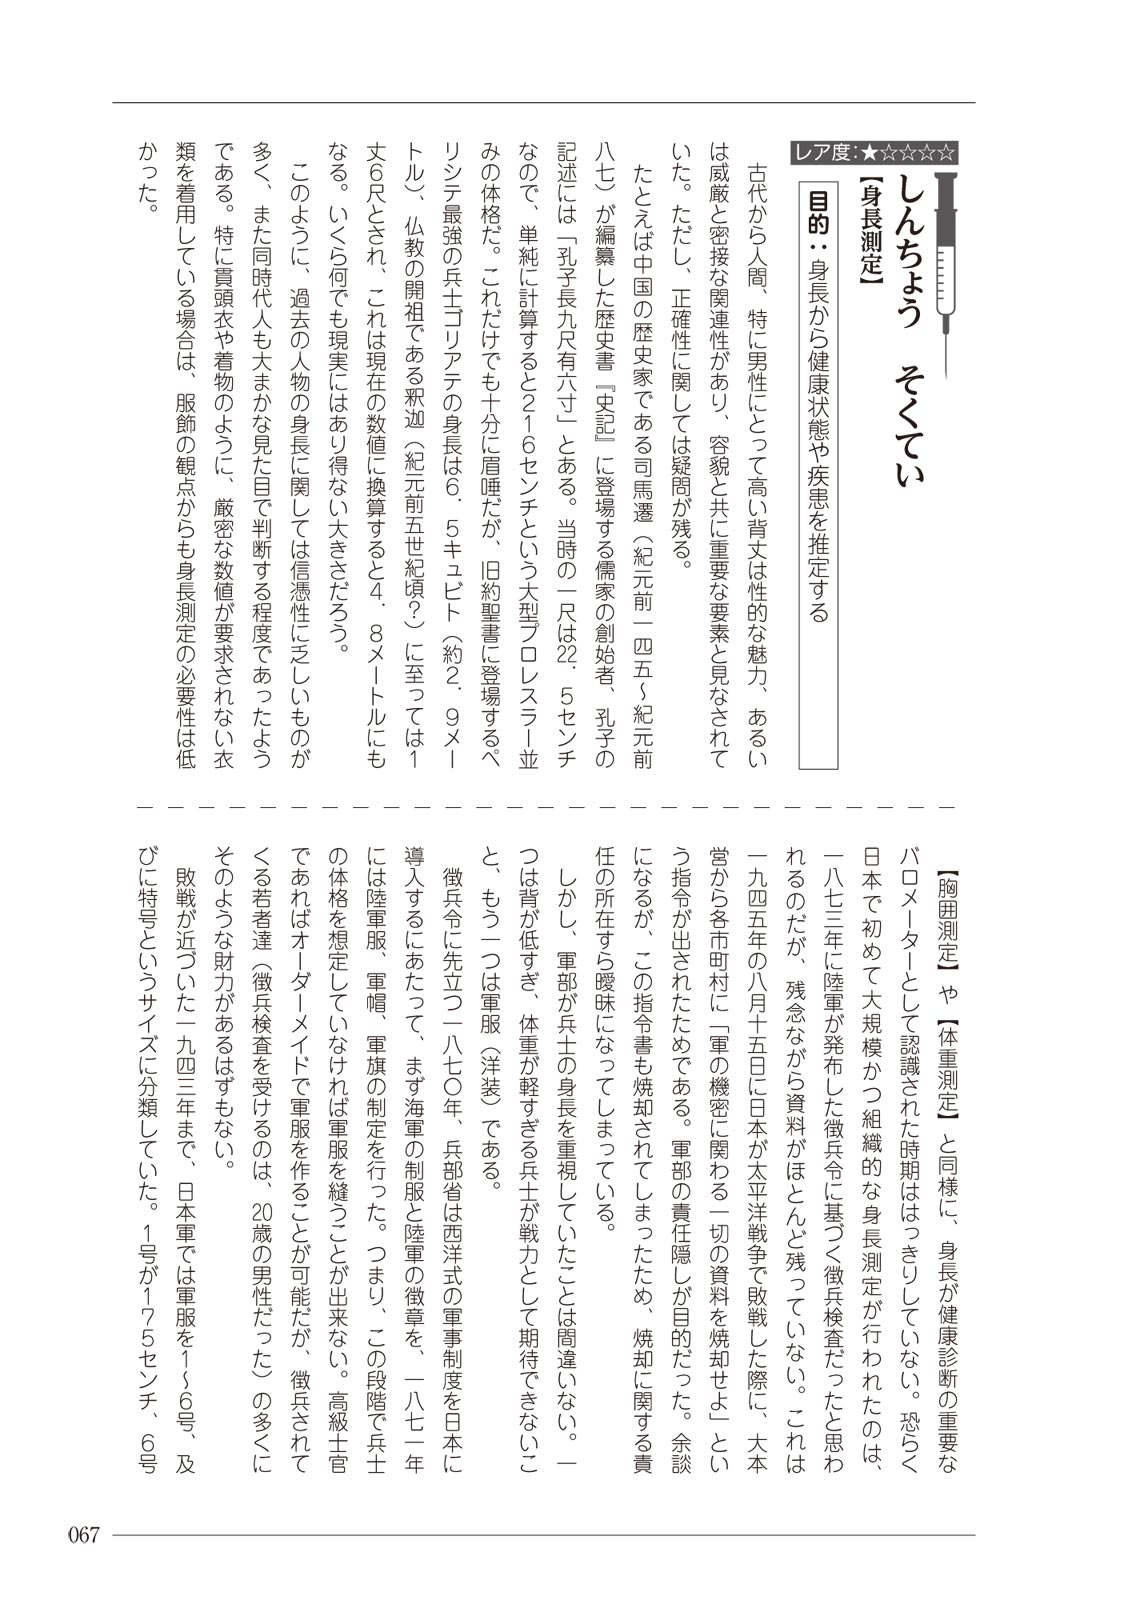 レア度:★☆☆☆☆
しんちょう そくてい
【身長測定】
目的:身長から健康状態や疾患を推定する
古代から人間、特に男性にとって高い背丈は性的な魅力、あるい
は威厳と密接な関連性があり、容貌と共に重要な要素と見なされて
いた。ただし、正確性に関しては疑問が残る。
たとえば中国の歴史家である司馬遷(紀元前一四五~紀元前
八七)が編纂した歴史書『史記』に登場する儒家の創始者、孔子の
記述には「孔子長九尺有六寸」とある。当時の一尺は22.5センチ
なので、単純に計算すると216センチという大型プロレスラー並
みの体格だ。これだけでも十分に眉唾だが、旧約聖書に登場するペ
リシテ最強の兵士ゴリアテの身長は6.5キュビト(約2.9メー
トル)、仏教の開祖である釈迦(紀元前五世紀頃?)に至っては1
丈6尺とされ、これは現在の数値に換算すると4.8メートルにも
なる。いくら何でも現実にはあり得ない大きさだろう。
このように、過去の人物の身長に関しては信憑性に乏しいものが
多く、また同時代人も大まかな見た目で判断する程度であったよう
である。特に貫頭衣や着物のように、厳密な数値が要求されない衣
類を着用している場合は、服飾の観点からも身長測定の必要性は低
かった。
【胸囲測定】や【体重測定】と同様に、身長が健康診断の重要な
バロメーターとして認識された時期ははっきりしていない。恐らく
日本で初めて大規模かつ組織的な身長測定が行われたのは、
一八七三年に陸軍が発布した徴兵令に基づく徴兵検査だったと思わ
れるのだが、残念ながら資料がほとんど残っていない。これは
一九四五年の八月十五日に日本が太平洋戦争で敗戦した際に、大本
営から各市町村に「軍の機密に関わる一切の資料を焼却せよ」とい
う指令が出されたためである。軍部の責任隠しが目的だった。余談
になるが、この指令書も焼却されてしまったため、焼却に関する責
任の所在すら曖昧になってしまっている。
しかし、軍部が兵士の身長を重視していたことは間違いない。一
つは背が低すぎ、体重が軽すぎる兵士が戦力として期待できないこ
と、もう一つは軍服(洋装)である。
徴兵令に先立つ一八七〇年、兵部省は西洋式の軍事制度を日本に
導入するにあたって、まず海軍の制服と陸軍の徽章を、一八七一年
には陸軍服、軍帽、軍旗の制定を行った。つまり、この段階で兵士
の体格を想定していなければ軍服を縫うことが出来ない。高級士官
であればオーダーメイドで軍服を作ることが可能だが、徴兵されて
くる若者達(徴兵検査を受けるのは、20歳の男性だった)の多くに
そのような財力があるはずもない。
敗戦が近づいた一九四三年まで、日本軍では軍服を1~6号、及
びに特号というサイズに分類していた。1号が175センチ、6号
067